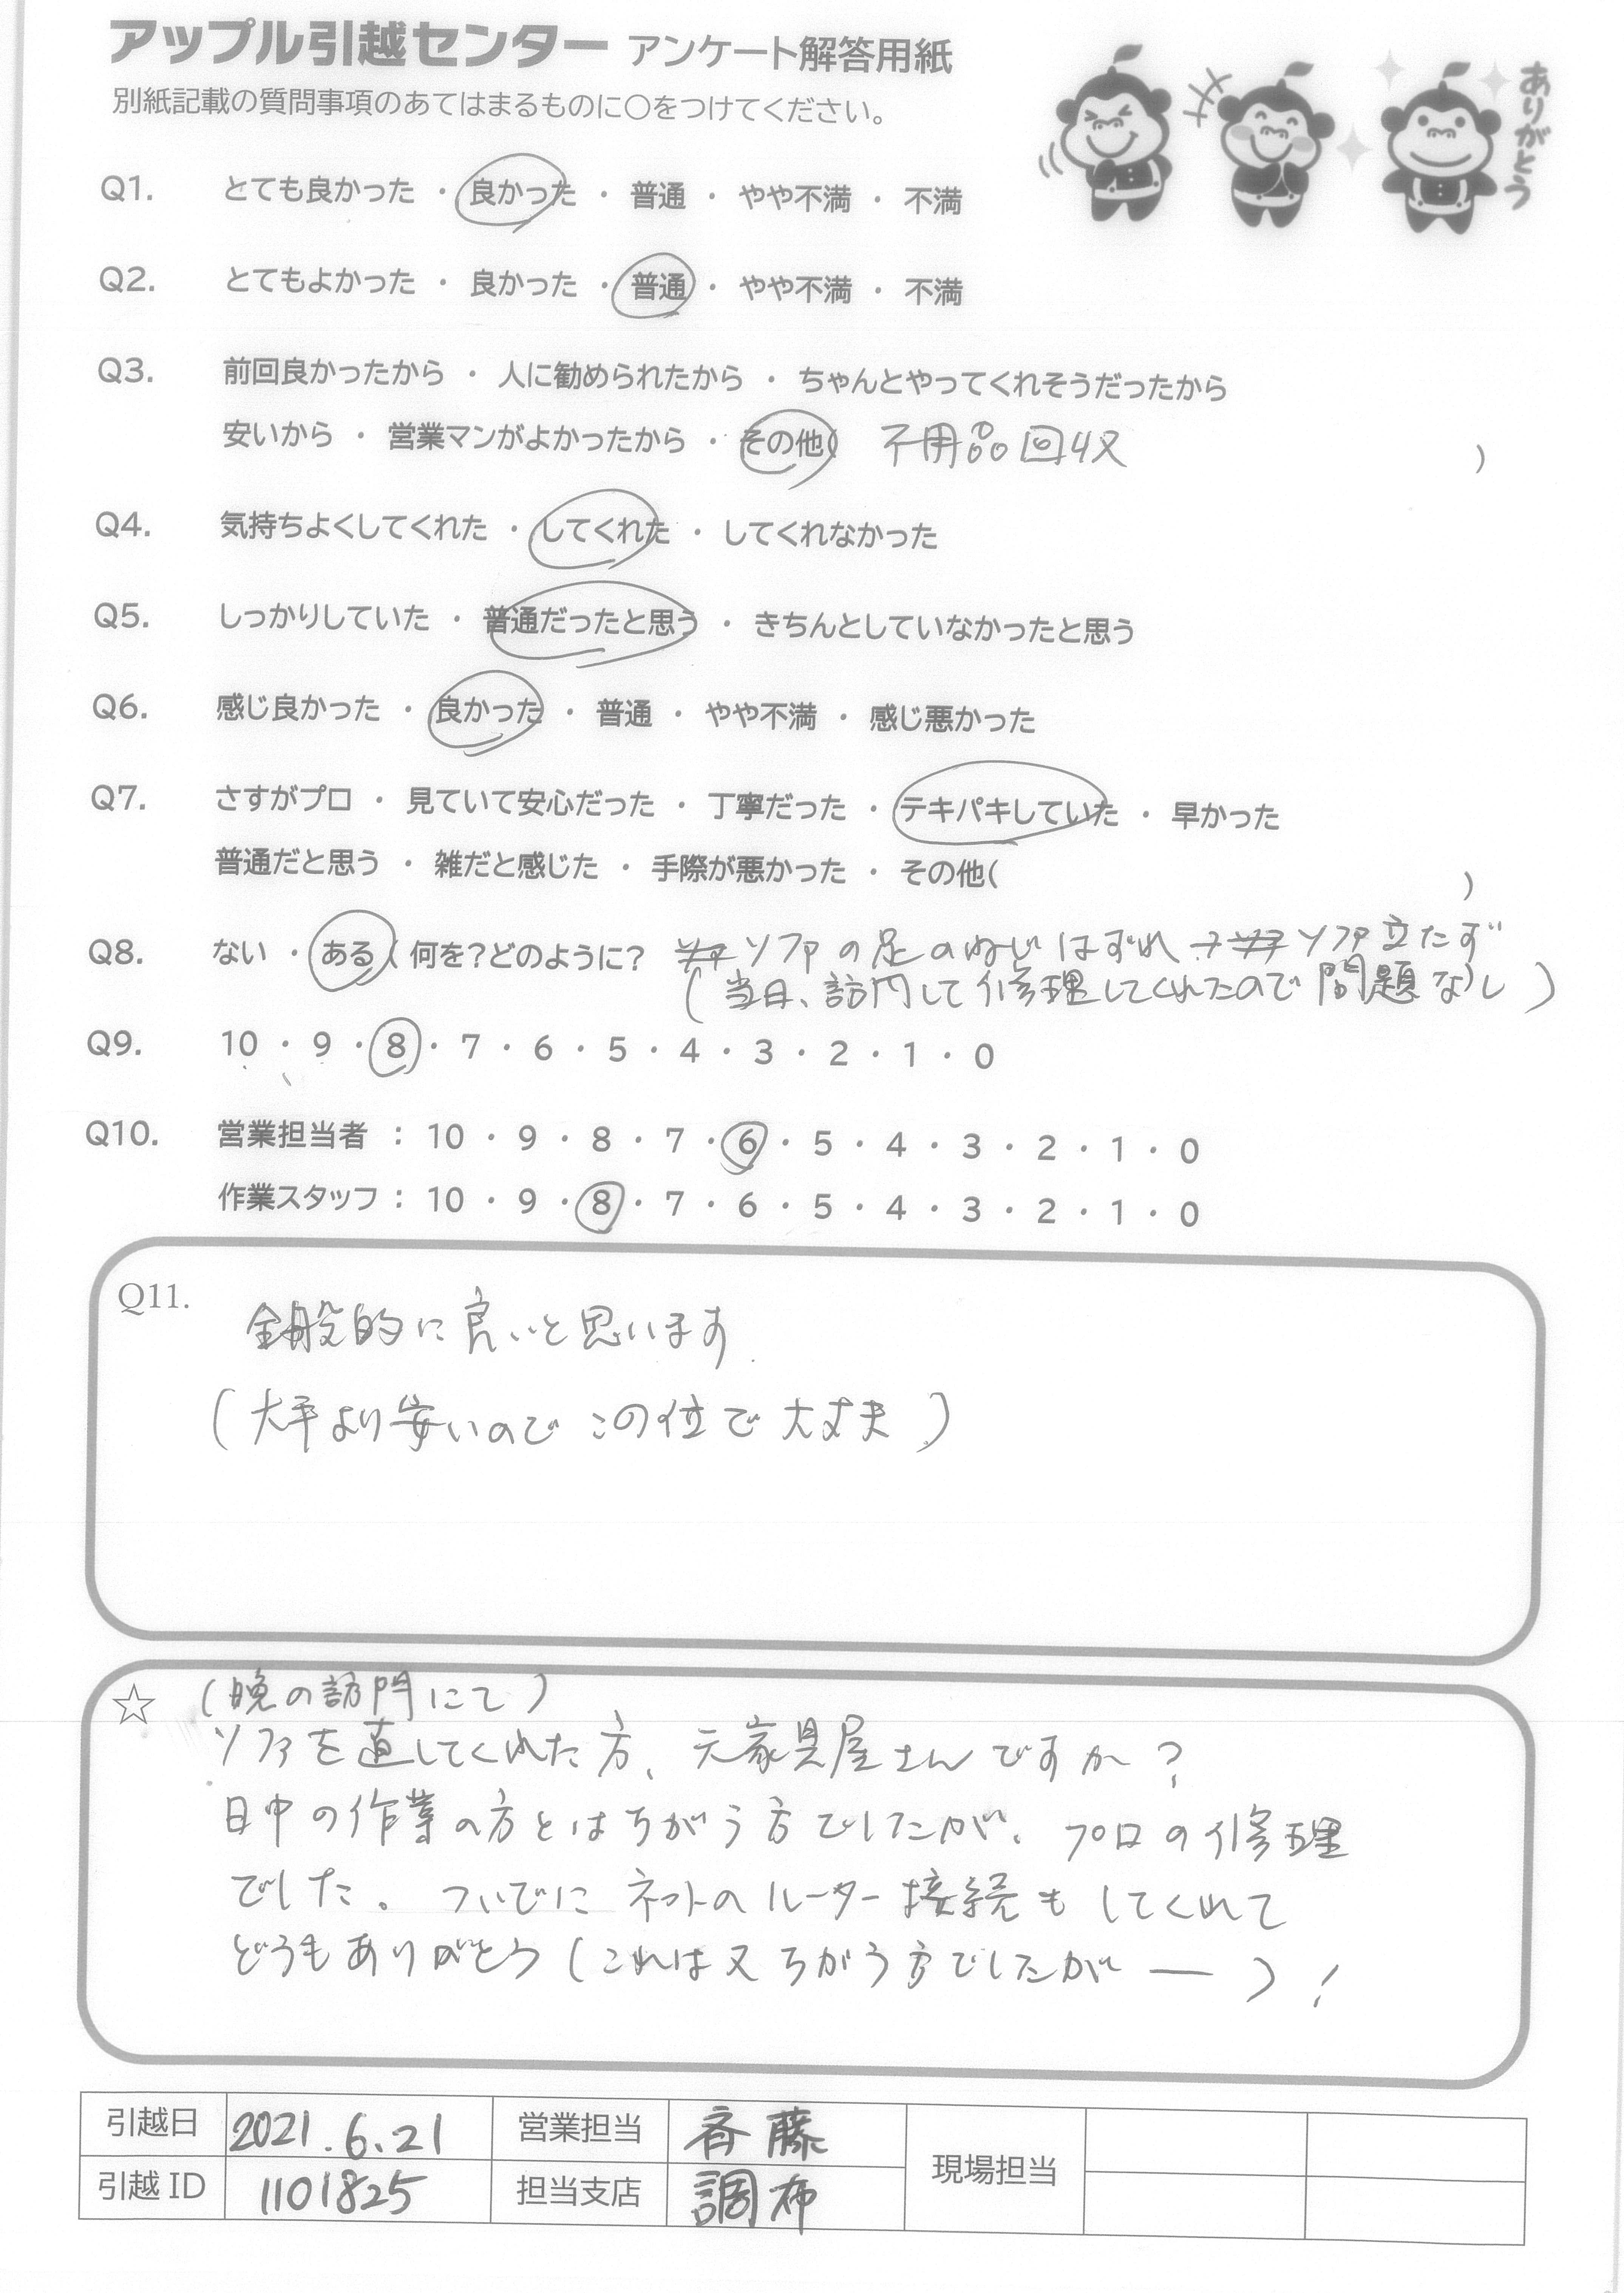 アップル引越センター アンケート解答用紙
別紙記載の質問事項のあてはまるものに〇をつけてください。
ありがとう
Q1. とても良かった ・ 良かった ・ 普通 ・ やや不満 ・ 不満
Q2. とてもよかった ・ 良かった ・ 普通 ・ やや不満 ・ 不満
Q3. 前回良かったから ・ 人に勧められたから ・ ちゃんとやってくれそうだったから
安いから ・ 営業マンがよかったから ・ その他( 不用品回収 )
Q4. 気持ちよくしてくれた ・ してくれた ・ してくれなかった
Q5. しっかりしていた ・ 普通だったと思う ・ きちんとしていなかったと思う
Q6. 感じ良かった ・ 良かった ・ 普通 ・ やや不満 ・ 感じ悪かった
Q7. さすがプロ ・ 見ていて安心だった ・ 丁寧だった ・ テキパキしていた ・ 早かった
普通だと思う ・ 雑だと感じた ・ 手際が悪かった ・ その他( )
Q8. ない ・ ある ( 何を?どのように? ソファの足のねじはずれ → ソファ立たず
(当日、訪門して修理してくれたので問題なし )
Q9. 10 ・ 9 ・ 8 ・ 7 ・ 6 ・ 5 ・ 4 ・ 3 ・ 2 ・ 1 ・ 0
Q10. 営業担当者 : 10 ・ 9 ・ 8 ・ 7 ・ 6 ・ 5 ・ 4 ・ 3 ・ 2 ・ 1 ・ 0
作業スタッフ : 10 ・ 9 ・ 8 ・ 7 ・ 6 ・ 5 ・ 4 ・ 3 ・ 2 ・ 1 ・ 0
Q11. 全般的に良いと思います.
(大手より安いのでこの位で大丈夫)
☆ (晩の訪門にて)
ソファを直してくれた方、元家具屋さんですか?
日中の作業の方とはちがう方でしたが、プロの修理
でした。ついでにネットのルーター接続もしてくれて
どうもありがとう(これは又ちがう方でしたが ―)!
引越日 2021.6.21 営業担当 斉藤 現場担当
引越 ID 1101825 担当支店 調布